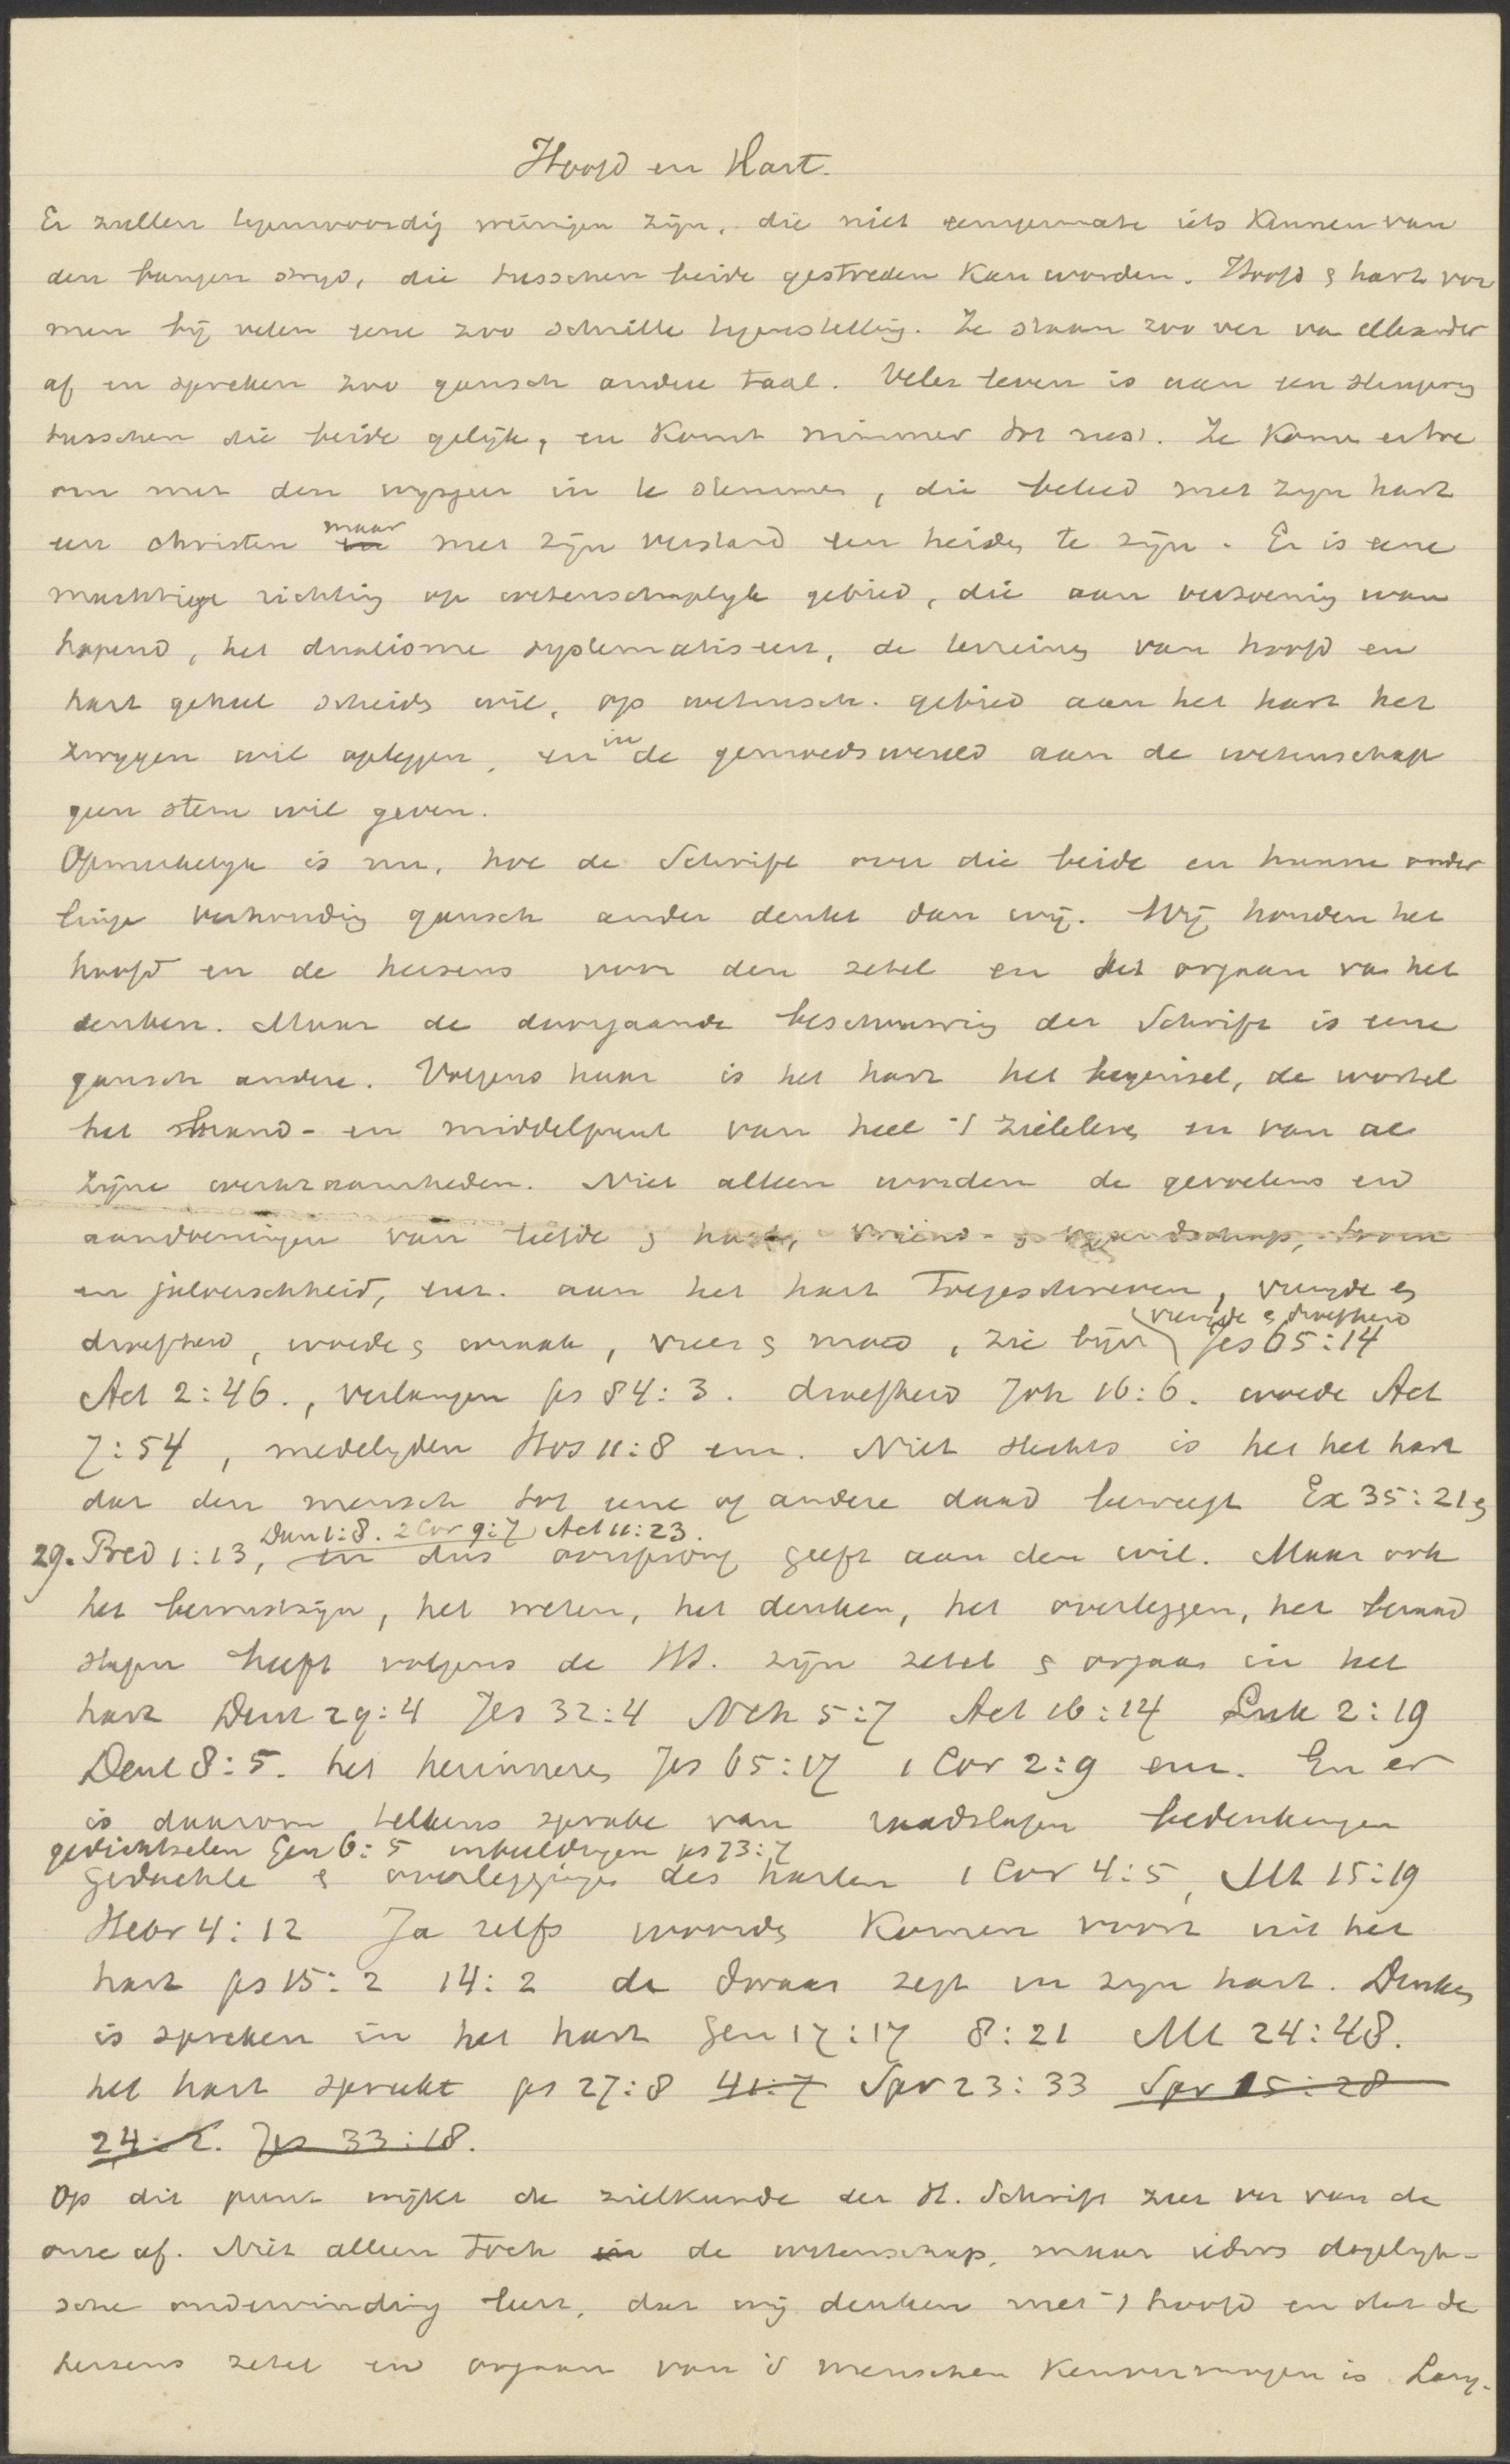 Hoofd en Hart.
Er zullen tegenwoordig weinigen zijn, die niet eenigermate iets kennen van
den bangen strijd, die tusschen beide gestreden kan worden. Hoofd & hart vor
men bij velen eene zoo schrille tegenstelling. Ze staan zoo ver van elkander
af en spreken zoo gansch andere taal. Veler leven is aan een slingering
tusschen die beide gelijk, en komt nimmer tot rust. Ze komen ertoe
om met den wijsgeer in te stemmen, die beleed met zijn hart
een christen maar met zijn verstand een heiden te zijn. Er is eene
machtige richting op wetenschaplijk gebied, die aan verzoening wan
hopend, het dualisme systematiseert, de terreinen van hoofd en
hart geheel scheiden wil, op wetensch. gebied aan het hart het
zwijgen wil opleggen, en in de gemoedswereld aan de wetenschap
geen stem wil geven.
Opmerkelijk is nu, hoe de Schrift over die beide en hunne onder
linge verhouding gansch anders denkt dan wij. Wij houden het
hoofd en de hersens voor den zetel en het orgaan van het
denken. Maar de doorgaande beschouwing der Schrift is eene
gansch andere. Volgens haar is het hart het beginsel, de wortel
het stand- en middelpunt van heel 't zieleleven en van al
zijne werkzaamheden. Niet alleen worden de gevoelens en
aandoeningen van liefde & haat, vriend- & vijandschap, trouw
en jaloerschheid, enz. aan het hart toegeschreven, vreugde en
vreugde & droefheid
droefheid, woede & wraak, vrees & moed, zie bijv Jes 65:14
Act 2:46., verlangen ps 84:3. droefheid Joh 16:6. woede Act
7:54, medelijden Hos 11:8 enz. Niet slechts is het het hart
dat den mensch tot eene of andere daad beweegt Ex 35:21 &
Dan 1:8. 2 Cor 9:7 Act 11:23.
29. Pred 1:13, en dus oorsprong geeft aan den wil. Maar ook
het bewustzijn, het weten, het denken, het overleggen, het beraad
slagen heeft volgens de HS. zijn zetel & orgaan in het
hart Deut 29:4 Jes 32:4 Neh 5:7 Act 16:14 Luk 2:19
Deut 8:5. het herinneren Jes 65:17 1 Cor 2:9 enz. En er
is daarom telkens sprake van raadslagen bedenkingen
gedichtselen Gen 6:5 inbeeldingen ps 73:7
gedachten & overleggingen des harten 1 Cor 4:5, Mt 15:19
Hebr 4:12 Ja zelfs woorden komen voort uit het
hart ps 15:2 14:2 de dwaas zegt in zijn hart. Denken
is spreken in het hart Gen 17:17 8:21 Mt 24:48.
het hart spreekt ps 27:8 41:7 Spr 23:33 Spr 15:28
24:2. Jes 33:18.
Op dit punt wijkt de zielkunde der H. Schrift zeer ver van de
onze af. Niet alleen toch de wetenschap, maar ieders dagelijk-
sche ondervinding leert, dat wij denken met 't hoofd en dat de
hersens zetel en orgaan van 's menschen kenvermogen is. Lang-